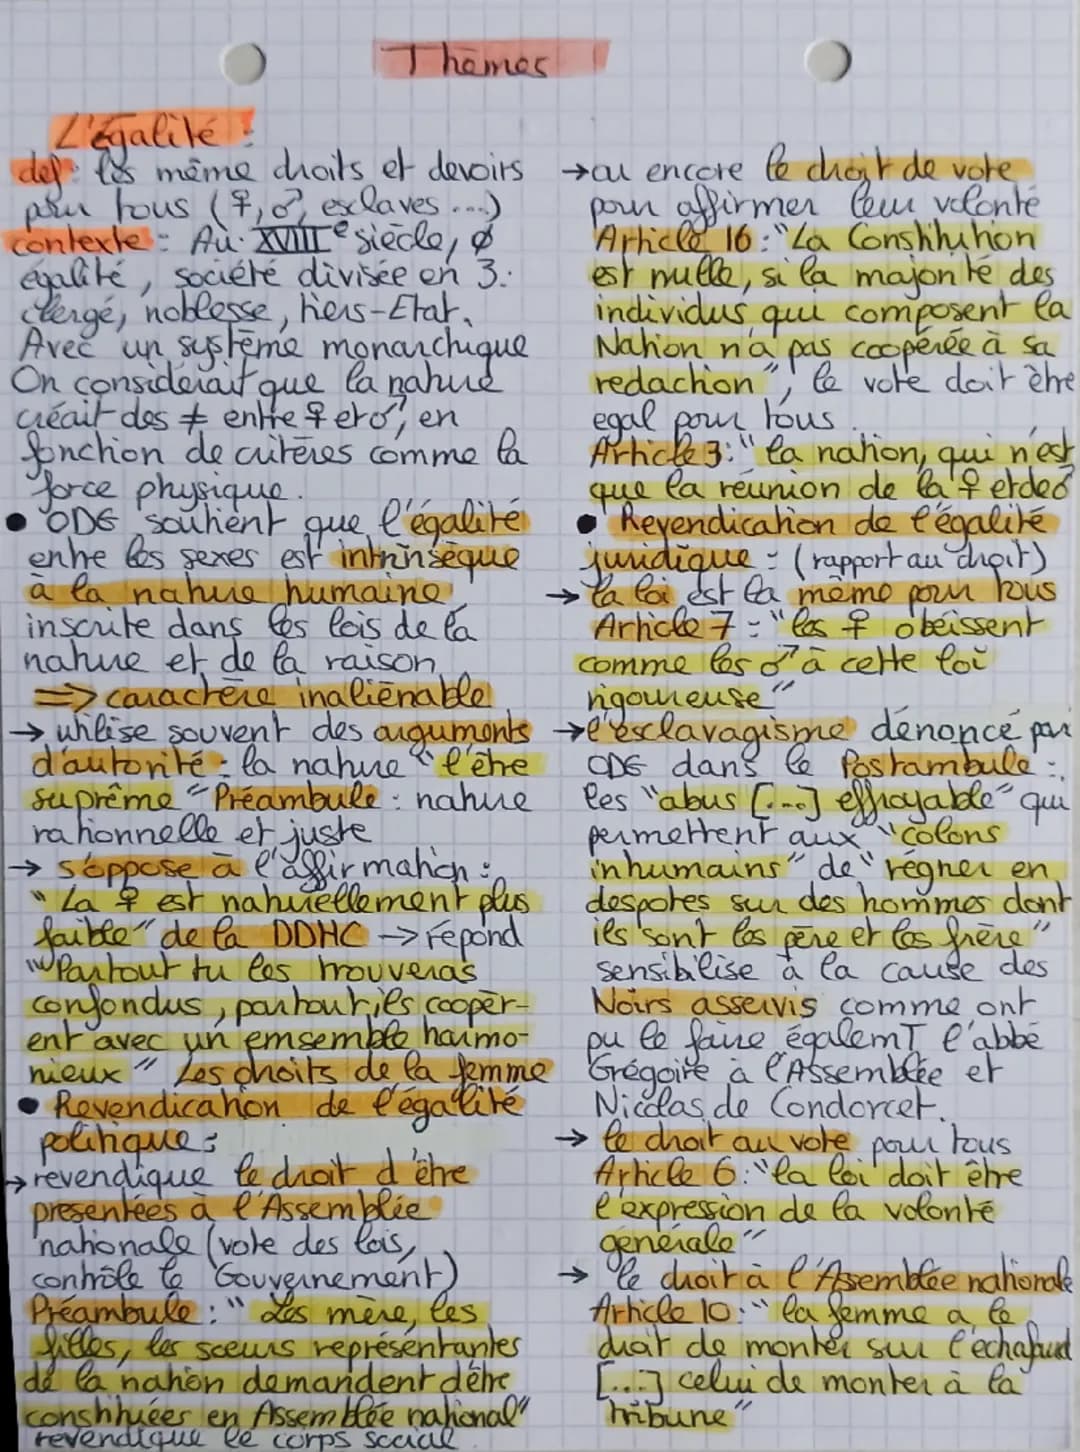 Thèmes
L'égalité :
def : les même droits et devoirs
pour tous (♀, ♂, esclaves ...)
contexte : Au XVIIIe siècle, ∅
égalité, société divisée en 3 :
clergé, noblesse, tiers-Etat.
Avec un système monarchique
On considérait que la nature
créait des ≠ entre ♀ et ♂, en
fonction de critères comme la
force physique.
• ODG soutient que l'égalité
entre les sexes est intrinsèque
à la nature humaine,
inscrite dans les lois de la
nature et de la raison
=> caractère inaliénable
→ utilise souvent des arguments
d'autorité : la nature "l'être
suprême" Préambule : nature
rationnelle et juste
→ s'oppose à l'affirmation :
"La ♀ est naturellement plus
faible" de la DDHC → répond
"Partout tu les trouveras
confondus, partout ils coopèr-
ent avec un emsemble harmo-
nieux" Les droits de la femme
• Revendication de l'égalité
politique :
→ revendique le droit d'être
présentées à l'Assemblée
nationale (vote des lois,
contrôle le Gouvernement)
Préambule : "Les mère, les
filles, les sœurs représentantes
de la nation demandent d'être
constituées en Assemblée national"
revendique le corps social
→ ou encore le droit de vote
pour affirmer leur volonté
Article 16 : "La Constitution
est nulle, si la majorité des
individus qui composent la
Nation n'a pas coopérée à sa
redaction", le vote doit être
egal pour tous.
Article 3 : "la nation, qui n'est
que la réunion de la ♀ et de ♂
• Revendication de l'égalité
juridique : (rapport au droit)
→ la loi est la même pour tous
Article 7 : "les ♀ obéissent
comme les ♂ à cette loi
rigoureuse"
→ l'esclavagisme dénoncé par
ODG dans le Postambule :
les "abus [...] effroyable" qui
permettent aux "colons
inhumains" de "régner en
despotes sur des hommes dont
ils sont les père et les frère"
sensibilise à la cause des
Noirs asservis comme ont
pu le faire égalemT l'abbé
Grégoire à l'Assemblée et
Nicolas de Condorcet.
→ le droit au vote pour tous
Article 6 : "la loi doit être
l'expression de la volonté
générale"
→ le droit à l'Assemblée nationale
Article 10 : "la femme a le
droit de monter sur l'échafaud
[...] celui de monter à la
tribune"